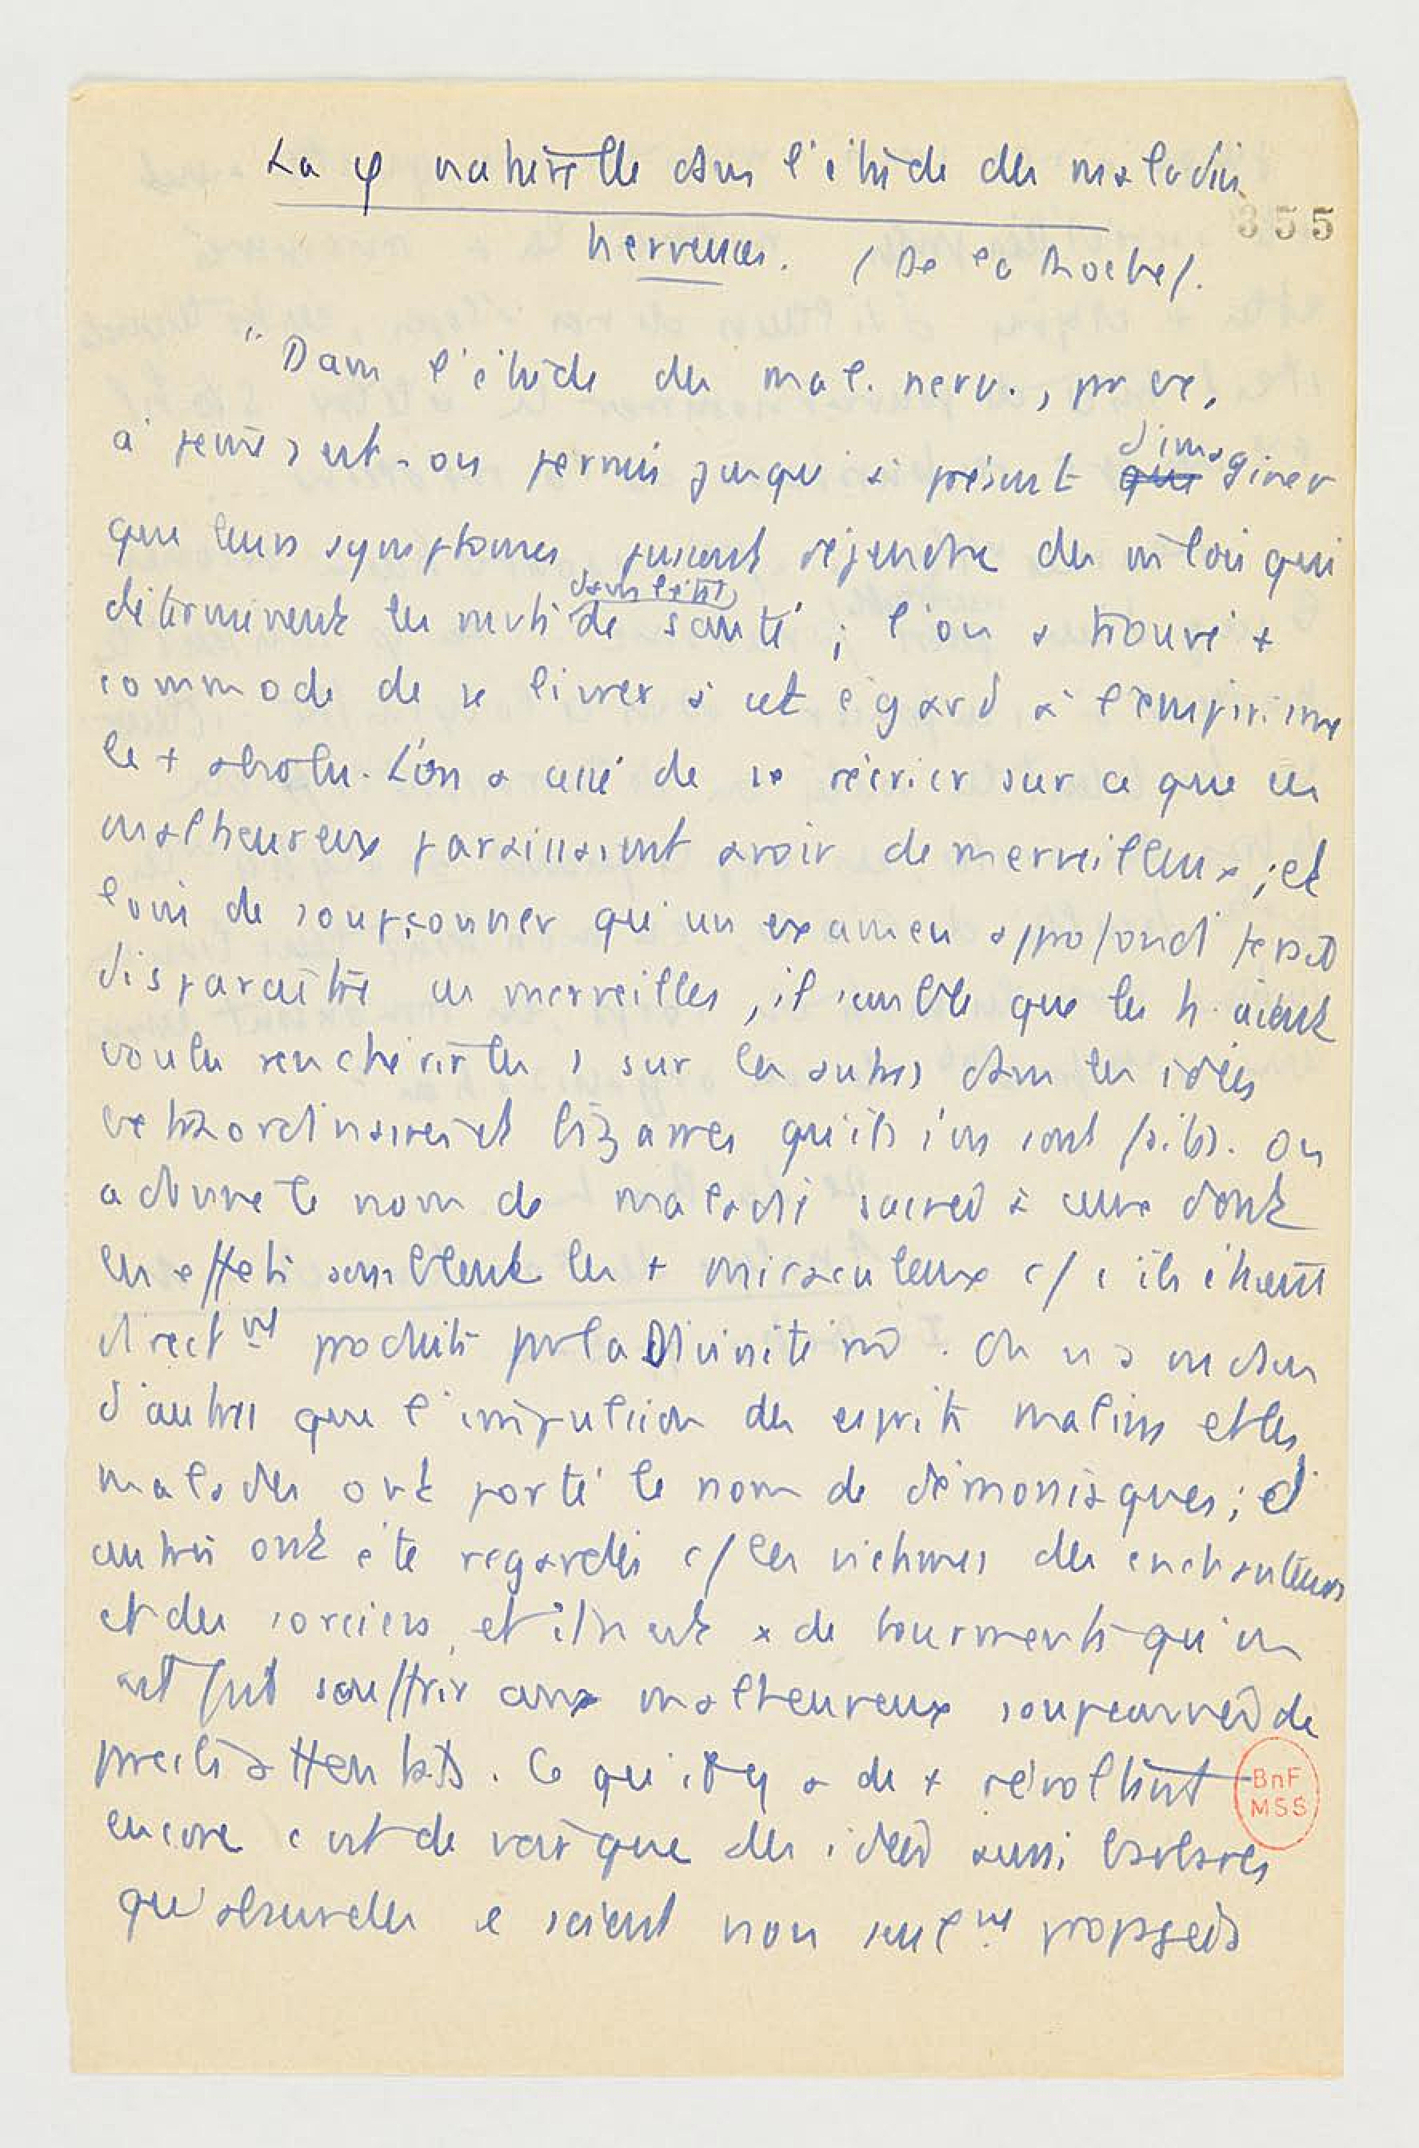 La φ naturelle dans l'étude des maladies
355
nerveuses. (De la Roche).
"Dans l'étude des mal. nerv., par ex,
à peine s'est-on permis jusqu'à présent d'imaginer
que leurs symptomes pussent dépendre des m lois qui
déterminent les mvts dans l'état de santé ; l'on a trouvé +
commode de se livrer à cet égard à l'empirisme
le + absolu. L'on a cessé de se récrier sur ce que ces
malheureux paraissaient avoir de merveilleux ; et
loin de soupçonner qu'un examen approfond
disparaître ces merveilles, il semble que les h. aient
voulu renchérir les 1 sur les autres dans les idées
extraordinaires et bizarres qu'ils s'en sont faites. On
a donné le nom de maladie sacrée à celle dont
les effets semblent les + miraculeux c/ s'ils étaient
direct^mt produits par la Divinité m. On n'a vu dans
d'autres que l'impulsion des esprits malins et les
malades ont porté le nom de démoniaques ; d'
autres ont été regardés c/ les victimes des enchanteurs
et des sorciers, et il n'est x de tourments qu'on
ait fait souffrir aux malheureux soupçonnés de
pareils attentats. Ce qu'il y a de + révoltant
encore c'est de voir que des idées aussi barbares
qu'absurdes se soient non seul^mt propagées
BnF
MSS